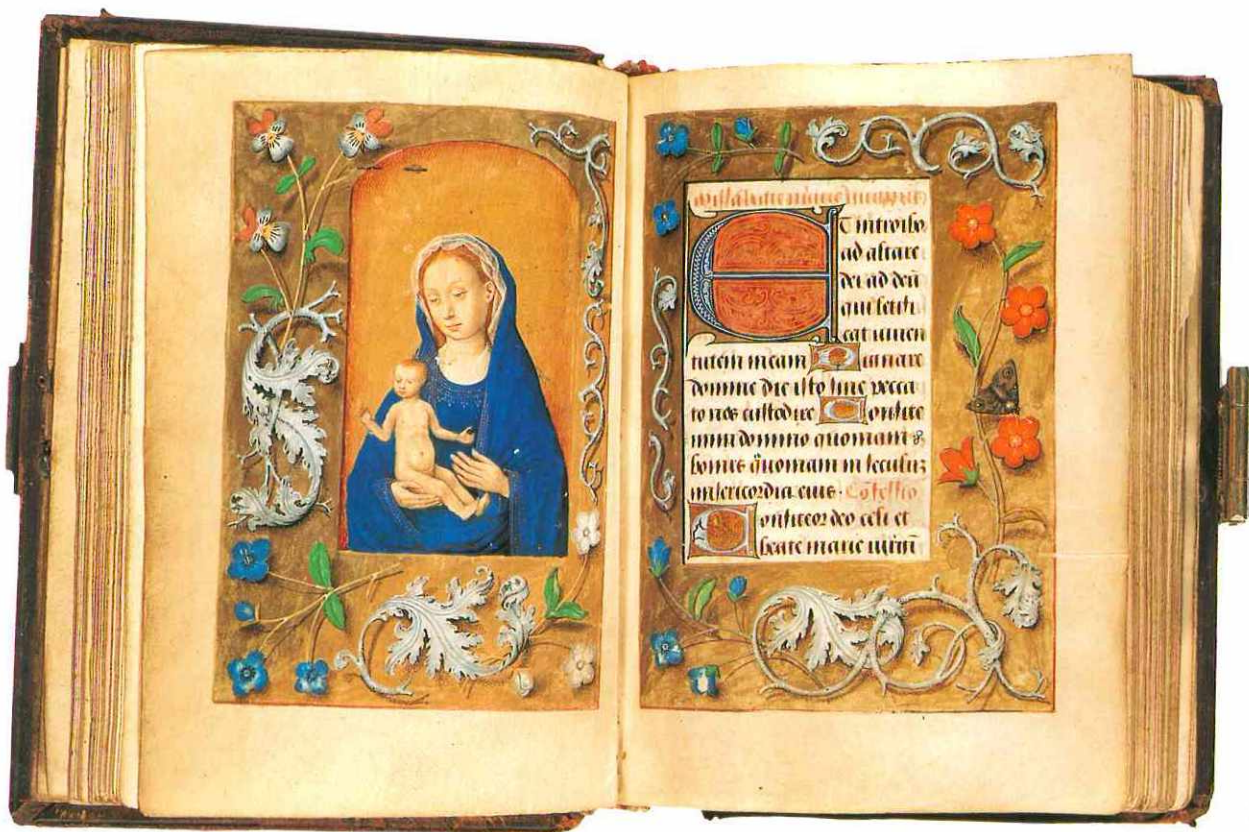 Missa beate marie virginis
ET introibo
ad altare
dei ad deū
qui letifi
cat iuven
tutem meam Dignare
domine die isto sine pecca
to nos custodire Confite
mini domino quoniam
bonus quoniam in seculū
misericordia eius. Cōfessio
Confiteor deo celi et
beate marie virgin